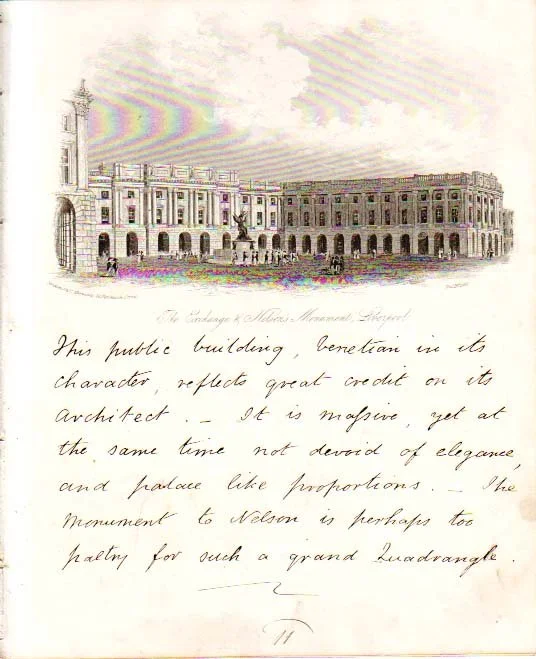 The Exchange & Nelsons Monument, Liverpool
This public building, Venetian in its
character, reflects great credit on its
Architect. _ It is massive, yet at
the same time not devoid of elegance,
and palace like proportions. _ The
Monument to Nelson is perhaps too
paltry for such a grand Quadrangle.
11